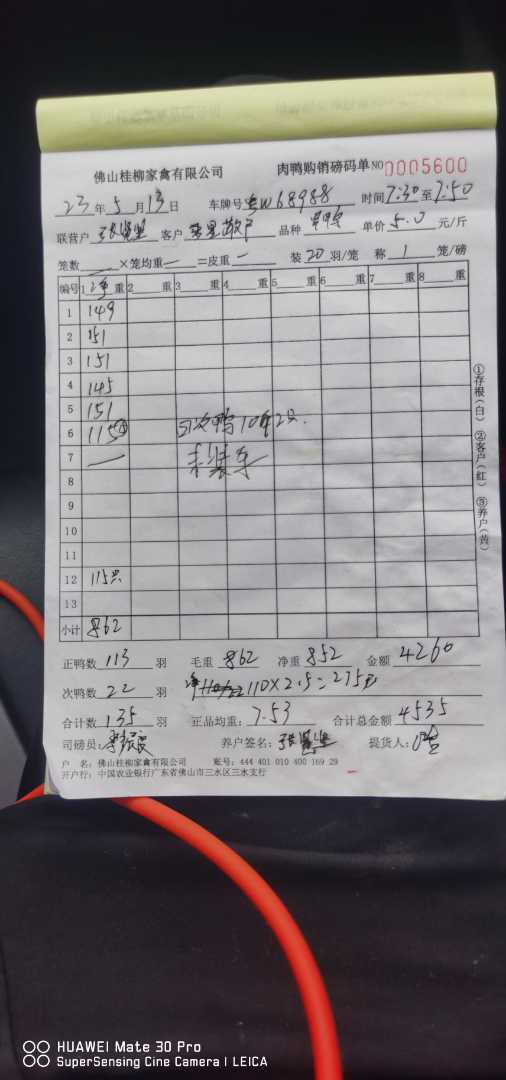 佛山桂柳家禽有限公司 肉鸭购销磅码单 NO 0005600
23年5月13日 车牌号 W68988 时间 7:30 至 7:50
联营户 客户 散户 品种 单价 5.0 元/斤
笼数 — ×笼均重 — =皮重 — 装 20 羽/笼 称 1 笼/磅
编号 1 净 重 2 重 3 重 4 重 5 重 6 重 7 重 8 重
1 149
2 151
3 151
4 145
5 151
6 115 次鸭10 2只
7 — 未装车
8
9
10
11
12 115只
13
小计 862
①存根(白) ②客户(红) ③养户(黄)
正鸭数 113 羽 毛重 862 净重 852 金额 4260
次鸭数 22 羽 110×2.5=275
合计数 135 羽 正品均重: 7.53 合计总金额 4535
司磅员: 养户签名: 提货人:
户 名: 佛山桂柳家禽有限公司 账号: 444 401 010 400 169 29
开户行: 中国农业银行广东省佛山市三水区三水支行
HUAWEI Mate 30 Pro
SuperSensing Cine Camera | LEICA